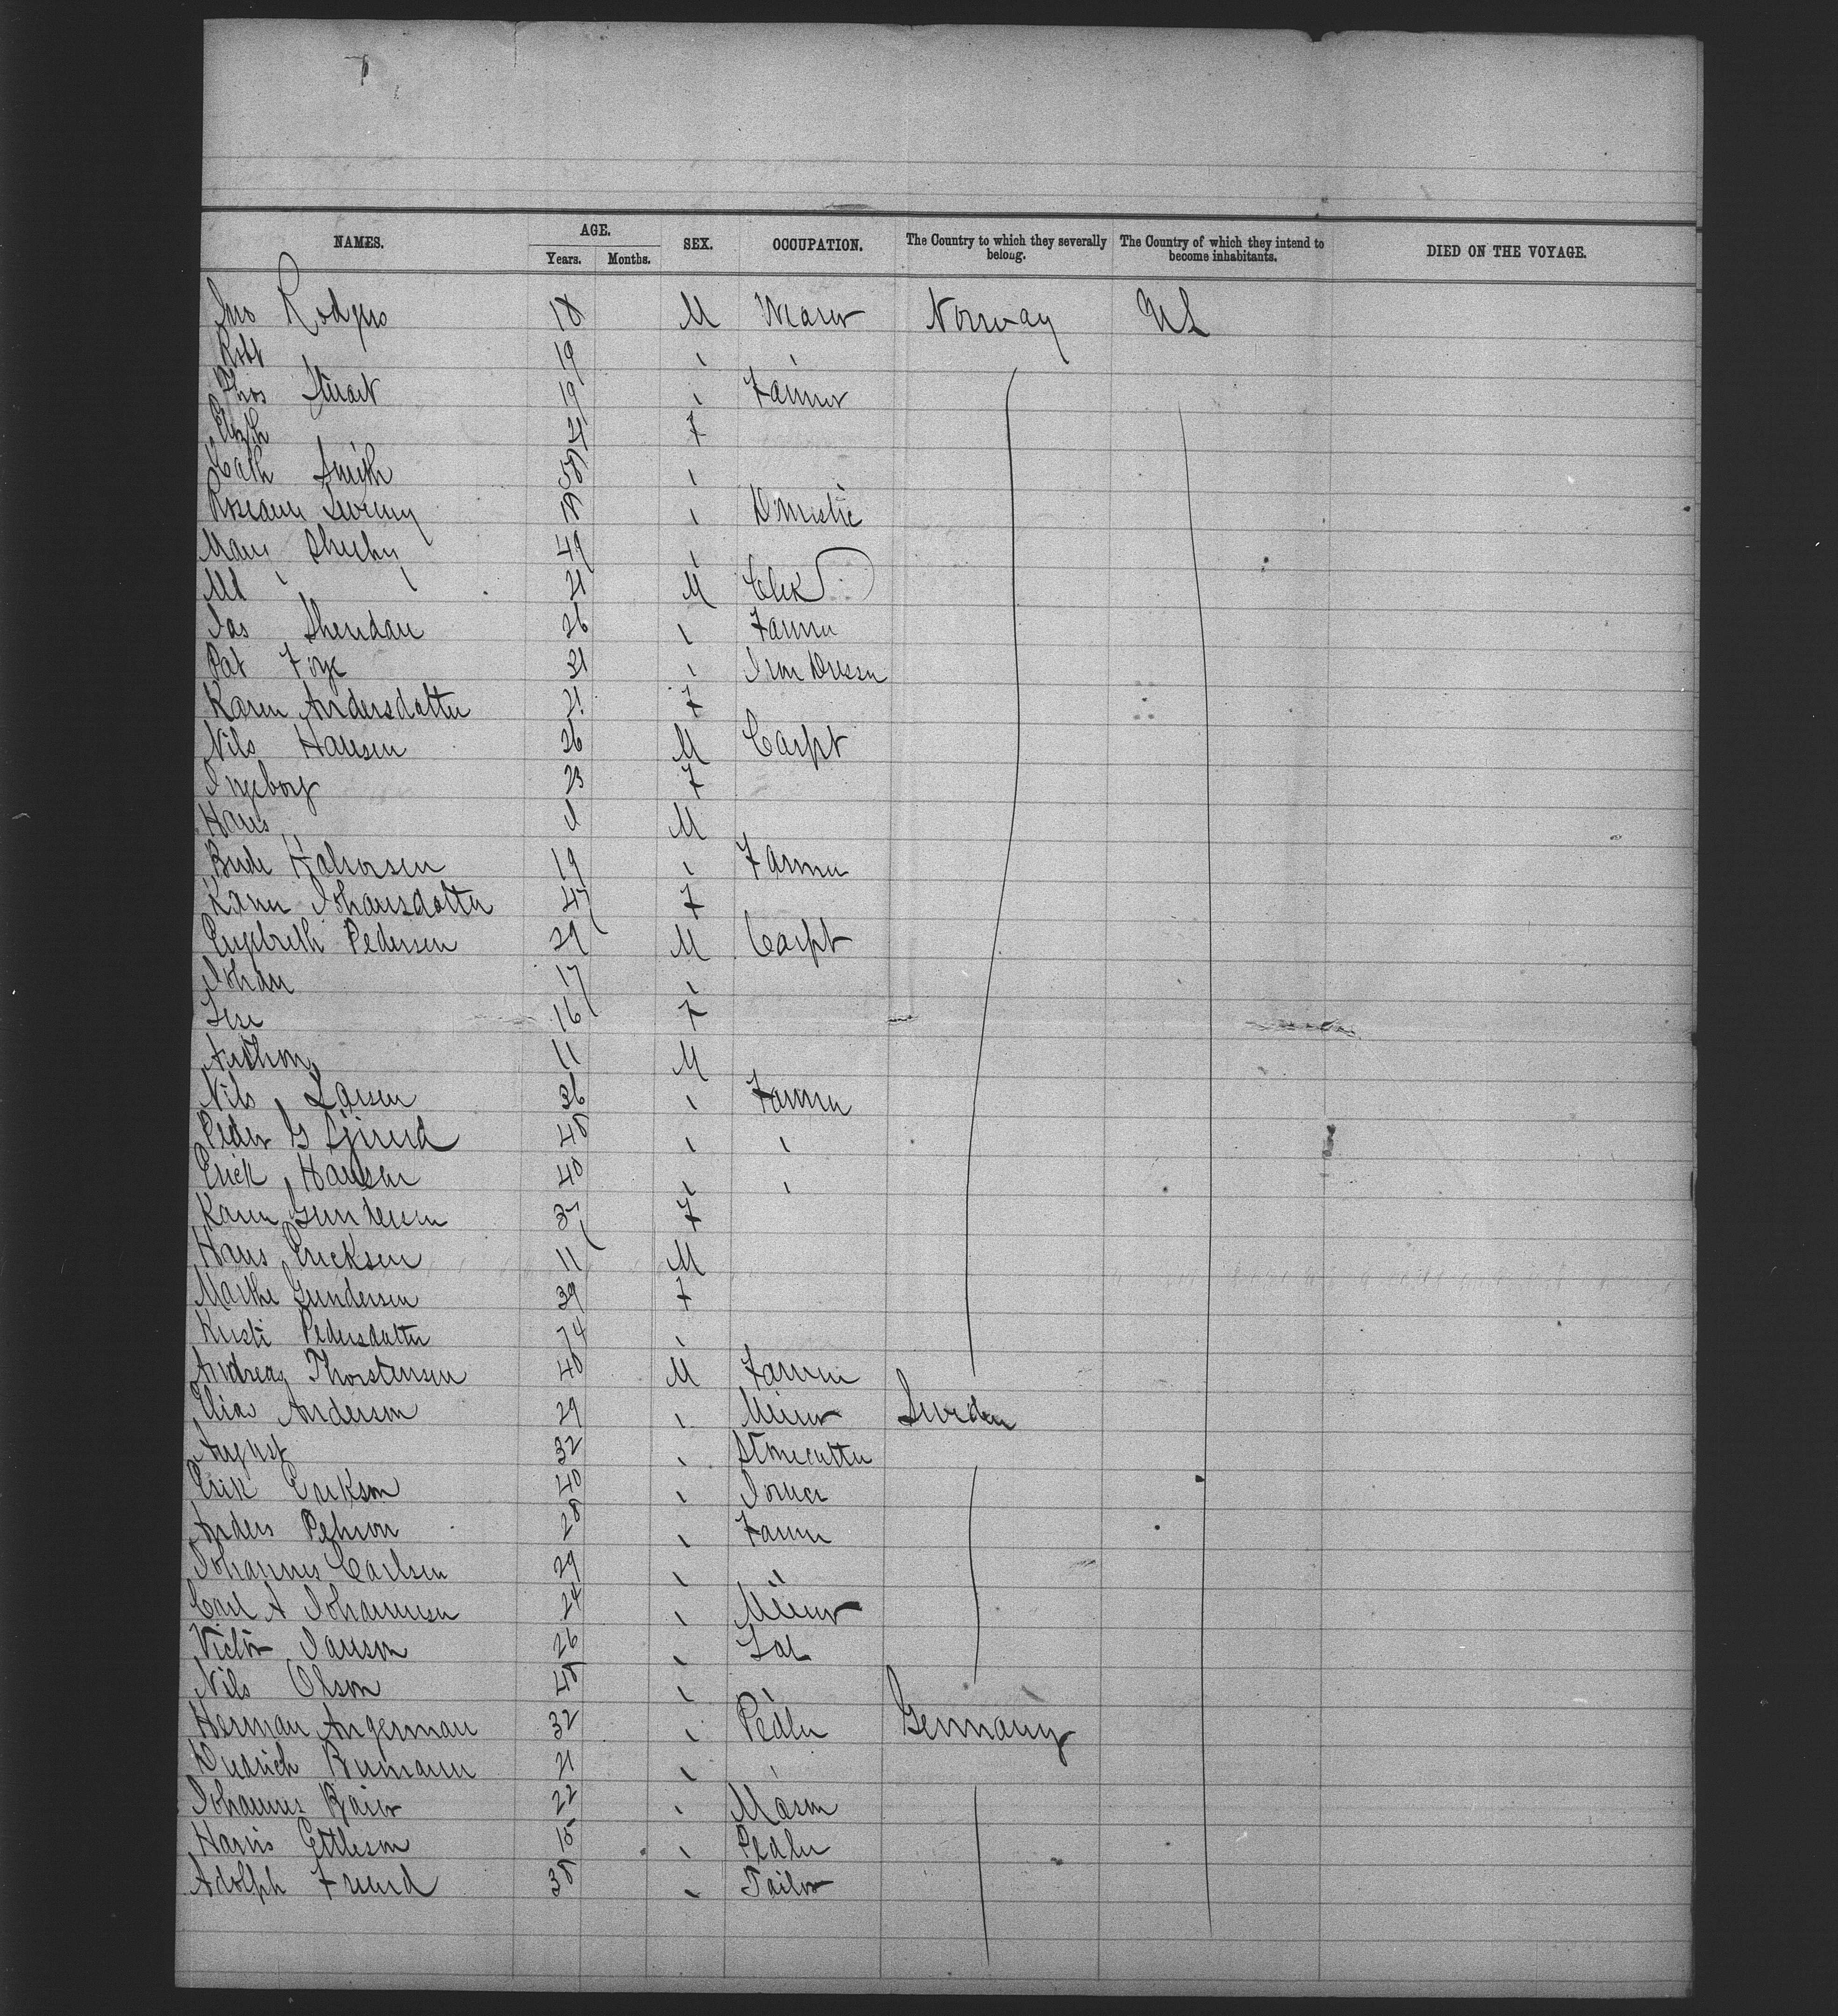 NAMES. AGE. SEX. OCCUPATION. The Country to which they severally belong. The Country of which they intend to become inhabitants. DIED ON THE VOYAGE.
Years. Months.
Jno Rodgers 18 M Norway US
Robt 19 " "
Thos Stuart 19 " Farmer
Elizth 21 F
Cath Smith 58 "
Roseann 18 " Domestic
Mary Sheehy 49 "
Ml " " 21 M Clerk
Jas Sheridan 26 " Farmer
Pat Foye 31 " Iron Dresser
Karen Andersdatter 21 F
Nils Hansen 26 M Carpt
Ingeborg 23 F
Hans M
Halvorsen 19 " Farmer
Karen Johansdatter 47 F
Engebreth Pedersen 29 M Carpt
Johan 17 "
Lise 16 F
Anthon 11 M
Nils Larsen 36 " Farmer
Peder G 48 " "
Erick Hansen 40 " "
Karen Gundersen 37 F
Hans Ericksen 11 M
Marthe Gundersen 39 F
Kristi Pedersdatter 74 "
Andreas Thorstensen 40 M Farmer
Elias Anderson 29 " Miner Sweden
August 32 " Stonecutter
Erik Erikson 40 " Joiner
Anders Pehrson 28 " Farmer
Johannes Carlsen 29 " "
Carl A Johannesen 24 " Miner
Victor Janson 26 " Lab
Nils Olson 48 " "
Herman Angerman 32 " Pedler Germany
Diedrich 21 " "
Johannes Baier 22 " Mason
Harris Ettleson 15 " Pedler
Adolph Freund 38 " Tailor